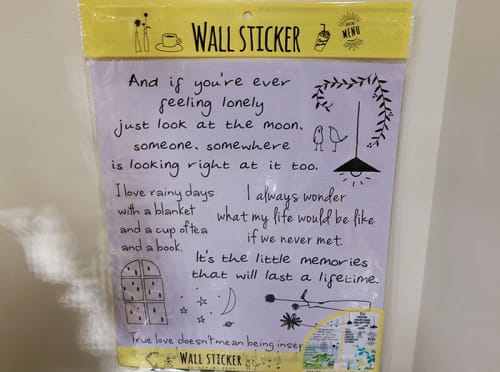 WALL STICKER
MENU
And if you're ever
feeling lonely
just look at the moon.
someone, somewhere
is looking right at it too.
I love rainy days
with a blanket
and a cup of tea
and a book.
I always wonder
what my life would be like
if we never met.
It's the little memories
that will last a lifetime.
True love doesn't mean being
WALL STICKER